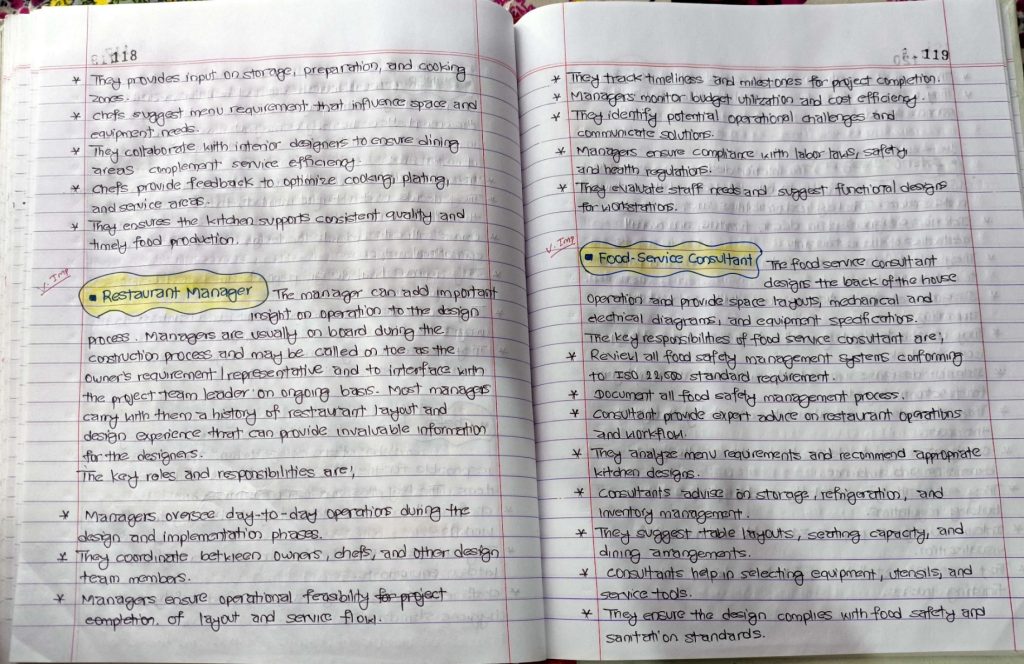 118
* They provides input on storage, preparation, and cooking
zones.
* chefs suggest menu requirement that influence space and
equipment needs.
* They collaborate with interior designers to ensure dining
areas complement service efficiency.
* chefs provide feedback to optimize cooking, plating,
and service areas.
* They ensures the kitchen supports consistent quality and
timely food production.
V. Imp
▪ Restaurant Manager The manager can add important
insight on operation to the design
process. Managers are usually on board during the
construction process and may be called on toe as the
owner's requirement / representative and to interface with
the project team leader on ongoing basis. Most managers
carry with them a history of restaurant layout and
design experience that can provide invaluable information
for the designers.
The key roles and responsibilities are;
* Managers oversee day-to-day operations during the
design and implementation phases.
* They coordinate between owners, chefs, and other design
team members.
* Managers ensure operational feasibility for project
completion. of layout and service flow.
119
* They track timeliness and milestones for project completion.
* Managers monitor budget utilization and cost efficiency.
* They identify potential operational challenges and
communicate solutions.
* Managers ensure compliance with labor laws, safety
and health regulations.
* They evaluate staff needs and suggest functional designs
for workstations.
V. Imp
▪ Food-Service Consultant The food service consultant
designs the back of the house
operation and provide space layouts, mechanical and
electrical diagrams, and equipment specifications.
The key responsibilities of food service consultant are;
* Review all food safety management systems conforming
to ISO 22,500 standard requirement.
* Document all food safety management process.
* consultant provide expert advice on restaurant operations
and workflow.
* They analyze menu requirements and recommend appropriate
kitchen designs.
* consultants advise on storage, refrigeration, and
inventory management.
* They suggest table layouts, seating capacity, and
dining arrangements.
* consultants help in selecting equipment, utensils, and
service tools.
* They ensure the design complies with food safety and
sanitation standards.